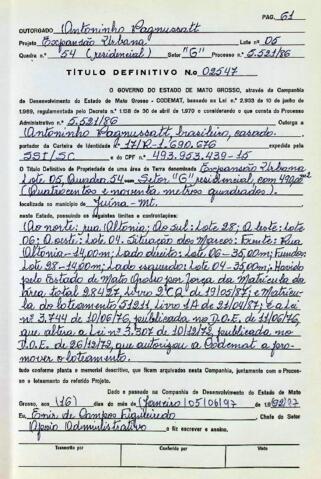 PAG. 61
OUTORGADO Antoninho Pagnussatt
Projeto Expansão Urbana Lote nº 05
Quadra n.º 54 (residencial) Setor "G" Processo n.º 5.521/86
TÍTULO DEFINITIVO N.o 02547
O GOVERNO DO ESTADO DE MATO GROSSO, através da Companhia
de Desenvolvimento do Estado de Mato Grosso - CODEMAT, baseado na Lei n.º 2.933 de 10 de julho de
1969, regulamentado pelo Decreto n.º 1.158 de 30 de abril de 1970 e considerando o que consta do Processo
Administrativo n.º 5.521/86 Outorga a
Antoninho Pagnussatt, brasileiro, casado.
portador da Carteira de Identidade n.º 17/R-1.690.676 expedida pela
SSI/SC e do CPF n.º 493.953.439-15
O Título Definitivo de Propriedade de uma área de Terra denominada Expansão Urbana
Lote 05, Quadra 54 - Setor "G" residencial, com 490,00m2
(Quatrocentos e noventa metros quadrados).
localizada no município de Juína-Mt.
neste Estado, possuindo os seguintes limites e confrontações:
Ao norte: rua Altônia; Ao sul: Lote 28; A leste: Lote
06; A oeste: Lote 04. Situação dos Marcos: Frente: Rua
Altônia-14,00m; Lado direito: Lote 06-35,00m; Fundos:
Lote 28-14,00m; Lado esquerdo: Lote 04-35,00m; Havido
pelo Estado de Mato Grosso por força da Matrícula da
área total 28427, Livro 2"CQ" de 19/05/77; e Matrícu-
la do loteamento 51211, Livro 1A de 21/04/87; e a Lei
nº 3.744 de 10/06/76, publicada no D.O.E. de 11/06/76,
que altera a Lei nº 3.307 de 10/12/72, publicada no
D.O.E. de 26/12/72, que autorizou a Codemat a pro-
mover o loteamento.
tudo conforme planta e memorial descritivo, que ficam arquivados nesta Companhia, juntamente com o Proces-
so e loteamento do referido Projeto.
Dado e passado na Companhia de Desenvolvimento do Estado de Mato
Grosso, aos (16) dias do mês de (Janeiro)
Eu, Enir de Campos Figueiredo Chefe do Setor
Apoio Administrativo o fiz escrever e assino.
Transcrito por Conferido por Visto